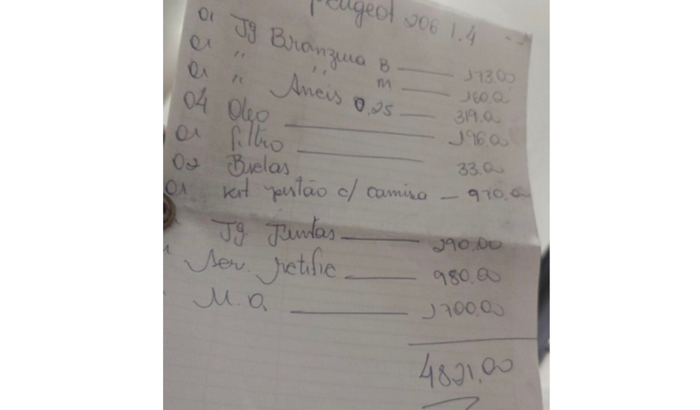 Peugeot 206 1.4
01 Jg Branzina B — 173.00
01 " " M — 160.00
01 " Aneis 0,25 — 319.00
04 Oleo — 196.00
01 filtro — 33.00
02 Bielas
01 Kit pistão c/ camisa — 970.00
Jg Juntas — 290.00
Ser. retific — 980.00
M.O. — 1700.00
4821.00